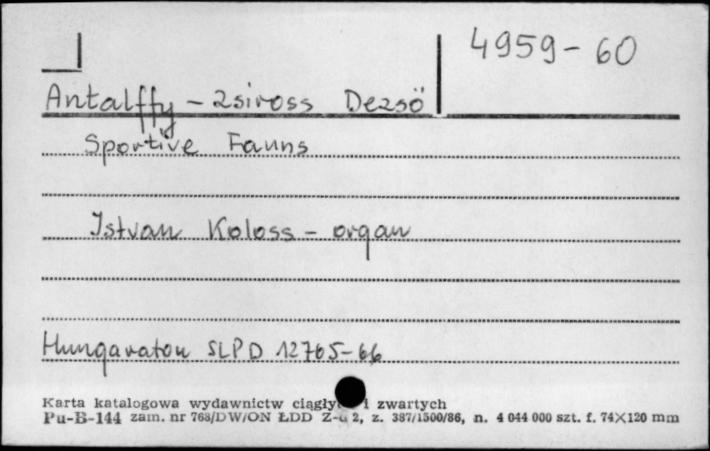 4959-60
Antalffy - Zsiross Dezsö
Sportive Fauns
Istvan Koloss - organ
Hungaraton SLPD 12765-66
Karta katalogowa wydawnictw ciągły i zwartych
Pu-B-144 zam. nr 768/DW/ON ŁDD 2, z. 387/1500/86, n. 4 044 000 szt. f. 74×120 mm